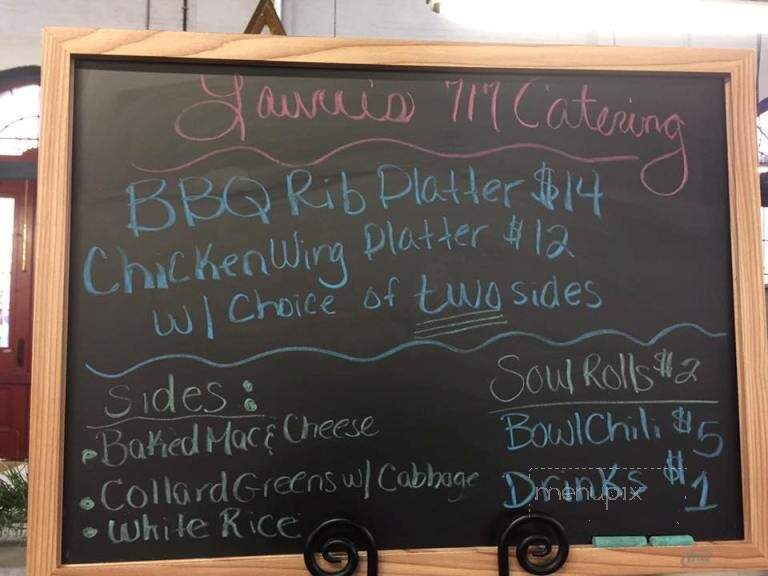 Lawrris 717 Catering
BBQ Rib Platter $14
Chicken Wing Platter $12
w/ Choice of two sides
Sides:
• Baked Mac & Cheese
• Collard Greens w/ Cabbage
• White Rice
Soul Rolls $2
Bowl Chili $5
Drinks $1
menupix